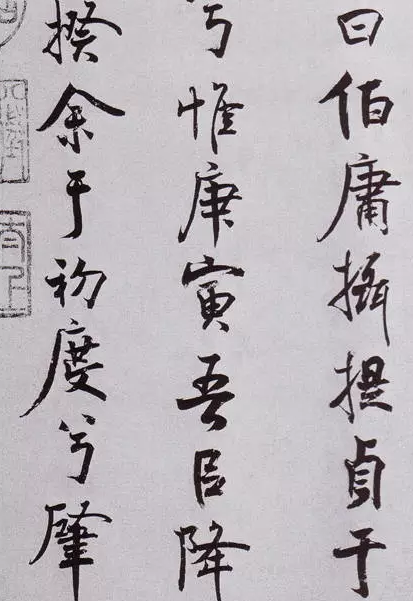 曰伯庸攝提貞于
兮惟庚寅吾㠯降
揆余于初度兮肇